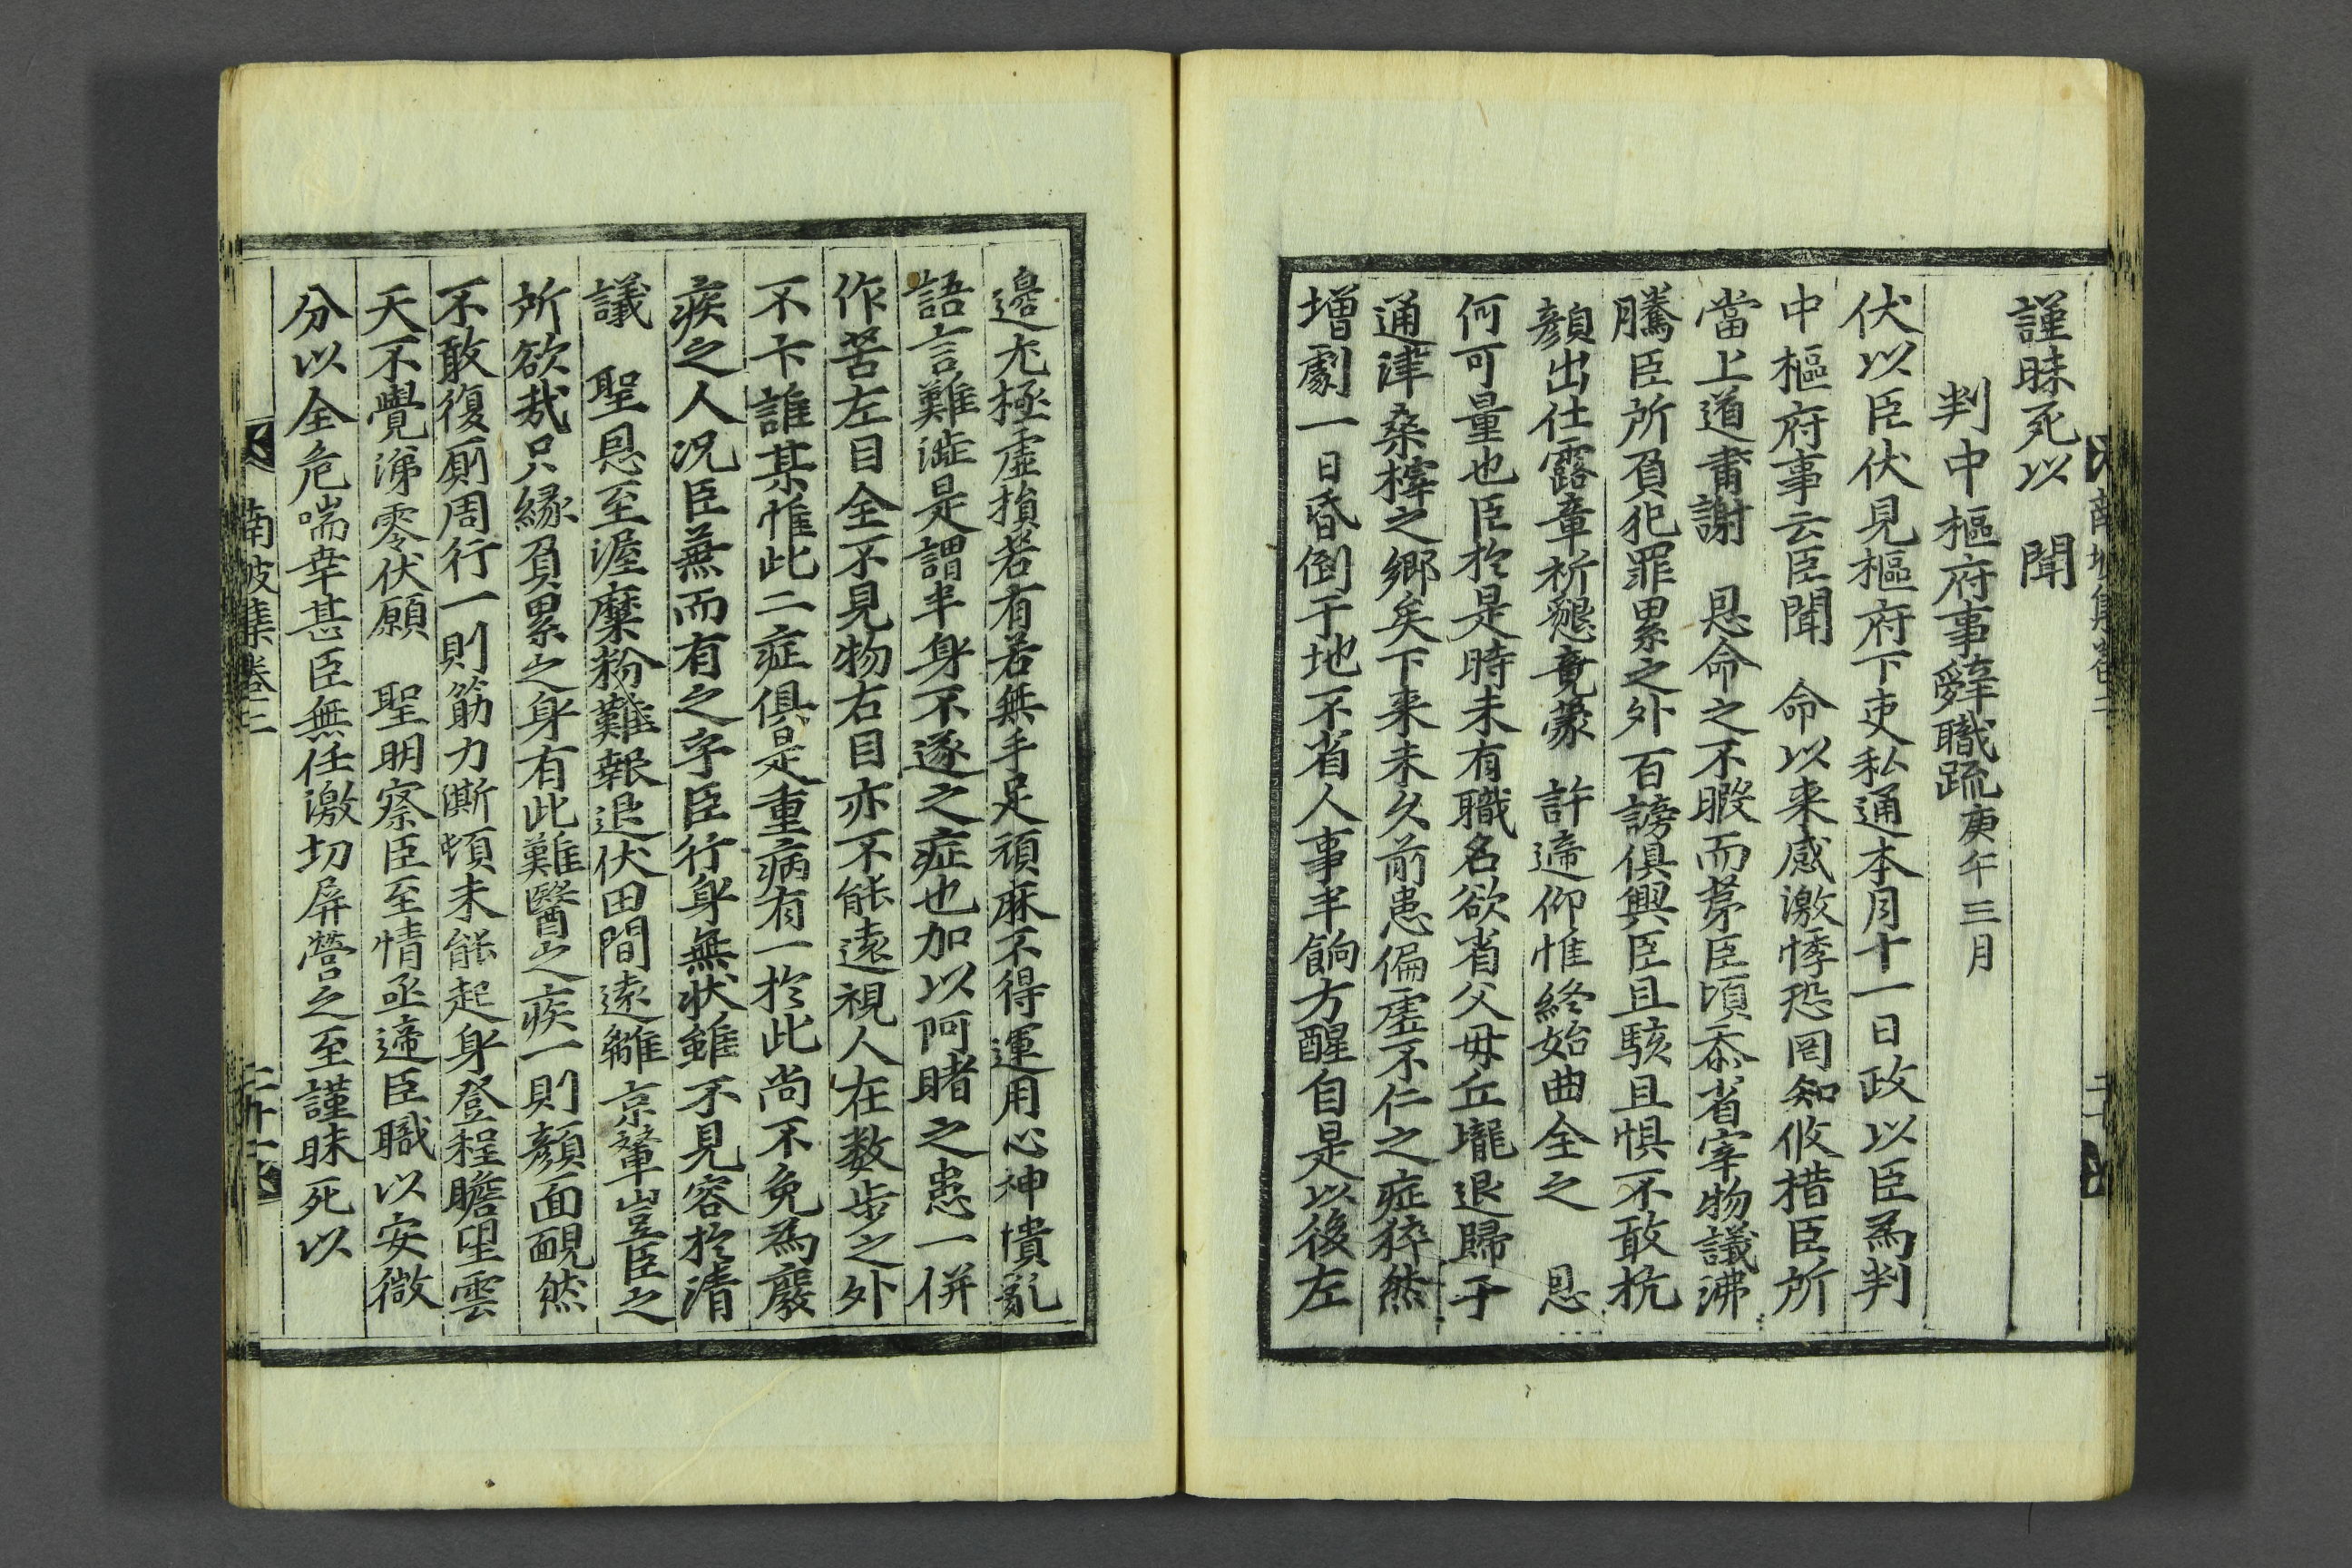 謹昧死以　聞
判中樞府事辭職疏庚午三月
伏以臣伏見樞府下吏私通本月十一日政以臣爲判
中樞府事云臣聞　命以来感激悸恐罔知攸措臣所
當上道肅謝　恩命之不暇而第臣頃忝省宰物議沸
騰臣所負犯罪累之外百謗俱興臣且駭且惧不敢抗
顔出仕露章祈懇竟蒙　許遞仰惟終始曲全之　恩
何可量也臣於是時未有職名欲省父毋丘壠退歸于
通津桑梓之鄉矣下来未久前患偏虛不仁之症猝然
增劇一日昏倒于地不省人事半餉方醒自是以後左
邊尤極虛損若有若無手足頑麻不得運用心神憒亂
語言難澁是謂半身不遂之症也加以阿睹之患一併
作苦左目全不見物右目亦不能遠視人在數步之外
不卞誰某惟此二症俱是重病有一於此尚不免為廢
疾之人况臣蕪而有之乎臣行身無狀雖不見容於清
議　聖恩至渥糜粉難報退伏田間遠離　京輦豈臣之
所欲哉只緣負累之身有此難醫之疾一則顔面靦然
不敢復厠周行一則筋力澌頓未能起身登程瞻望雲
天不覺涕零伏願　聖明察臣至情亟遞臣職以安微
分以全危喘幸甚臣無任激切屏營之至謹昧死以
南坡集卷三